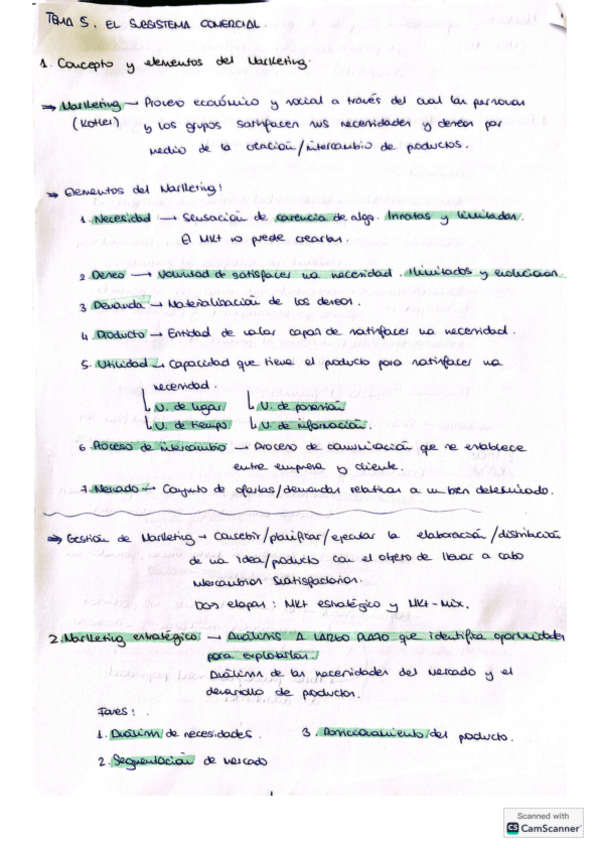 TEMA 5. EL SUBSISTEMA COMERCIAL.
1. Concepto y elementos del Marketing.
⇒ Marketing → Proceso económico y social a través del cual las personas
(Kotler) y los grupos satisfacen sus necesidades y deseos por
medio de la creación/intercambio de productos.
⇒ Elementos del Marketing:
1. Necesidad → Sensación de carencia de algo. Innatas y limitadas.
El Mkt no puede crearlas.
2. Deseo → Voluntad de satisfacer una necesidad. Ilimitados y evolucionan.
3. Demanda → Materialización de los deseos.
4. Producto → Entidad de valor capaz de satisfacer una necesidad.
5. Utilidad → Capacidad que tiene el producto para satisfacer una
necesidad.
U. de lugar U. de posesión
U. de tiempo U. de información.
6. Proceso de intercambio → Proceso de comunicación que se establece
entre empresa y cliente.
7. Mercado → Conjunto de ofertas/demandas relativas a un bien determinado.
⇒ Gestión de Marketing → Concebir/planificar/ejecutar la elaboración/distribución
de una idea/producto con el objeto de llevar a cabo
intercambios satisfactorios.
Dos etapas: Mkt estratégico y Mkt-Mix.
2. Marketing estratégico → Análisis A LARGO PLAZO que identifica oportunidades
para explotarlas.
Análisis de las necesidades del mercado y el
desarrollo de productos.
Fases:
1. Análisis de necesidades. 3. Posicionamiento del producto.
2. Segmentación de mercado
Scanned with
CS CamScanner